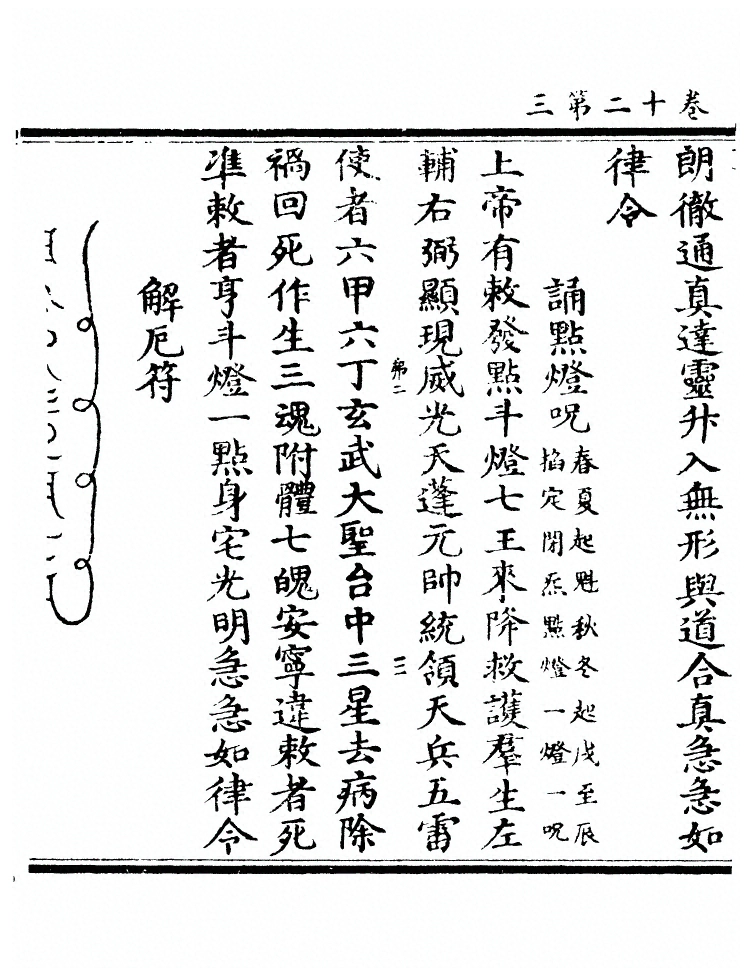 卷十二第三
朗徹通真達靈升入無形與道合真急急如
律令
誦點燈呪
春夏起魁秋冬起戌至辰
掐定閉炁點燈一燈一呪
上帝有敕發點斗燈七王來降救護羣生左
輔右弼顯現威光天蓬元帥統領天兵五雷
第二 三
使者六甲六丁玄武大聖台中三星去病除
禍回死作生三魂附體七魄安寧違敕者死
凖敕者亨斗燈一點身宅光明急急如律令
解厄符